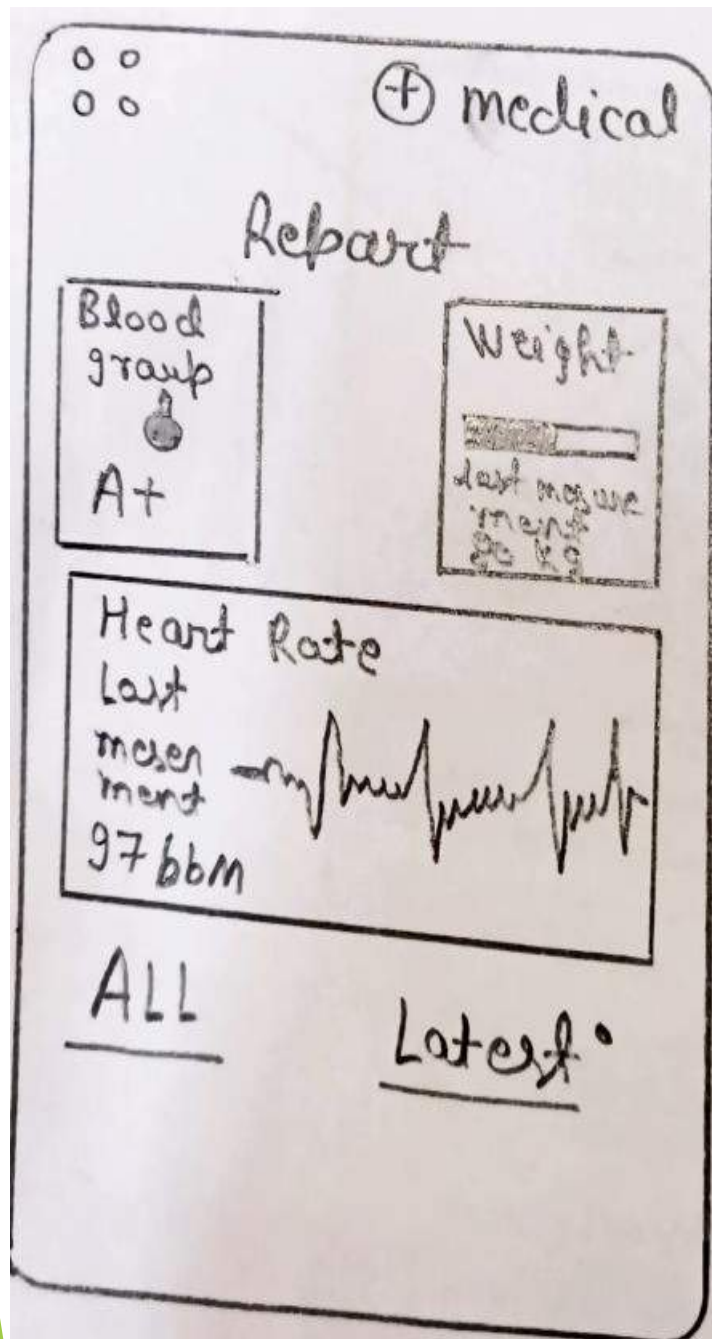 + medical
Repart
Blood
group
A+
Weight
last mesure
ment
90 kg
Heart Rate
Last
meser
ment
97 bbm
ALL
Latest